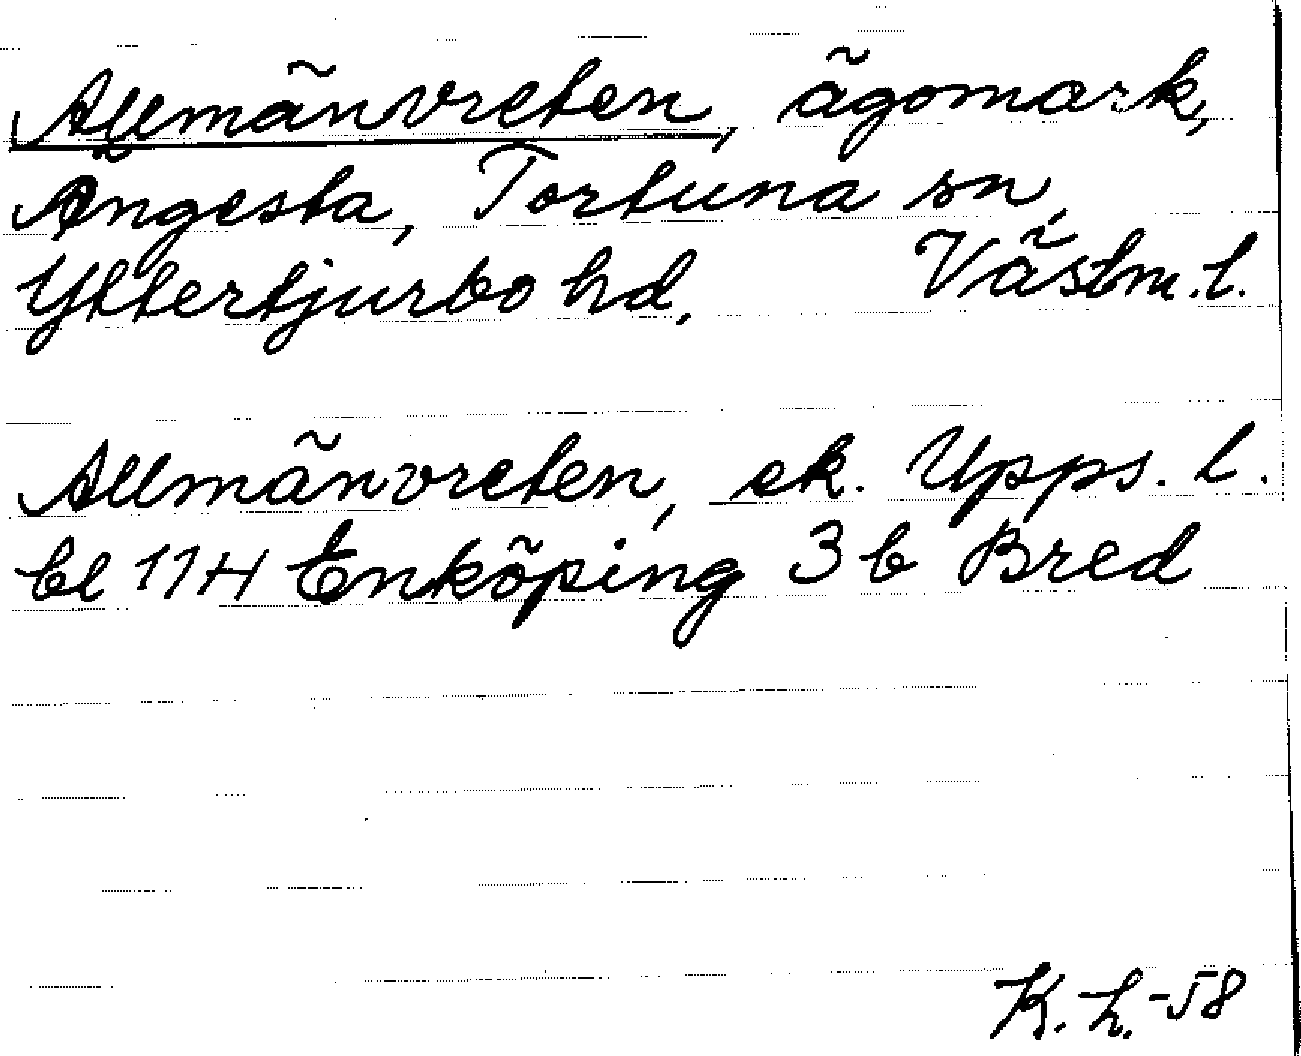 Allmänvreten, ägomark,
Ängesta, Tortuna sn,
Yttertjurbo hd, Västm. l.
Allmänvreten, ek. Upps. l.
bl 11H Enköping 3 b Bred
K. L. -58